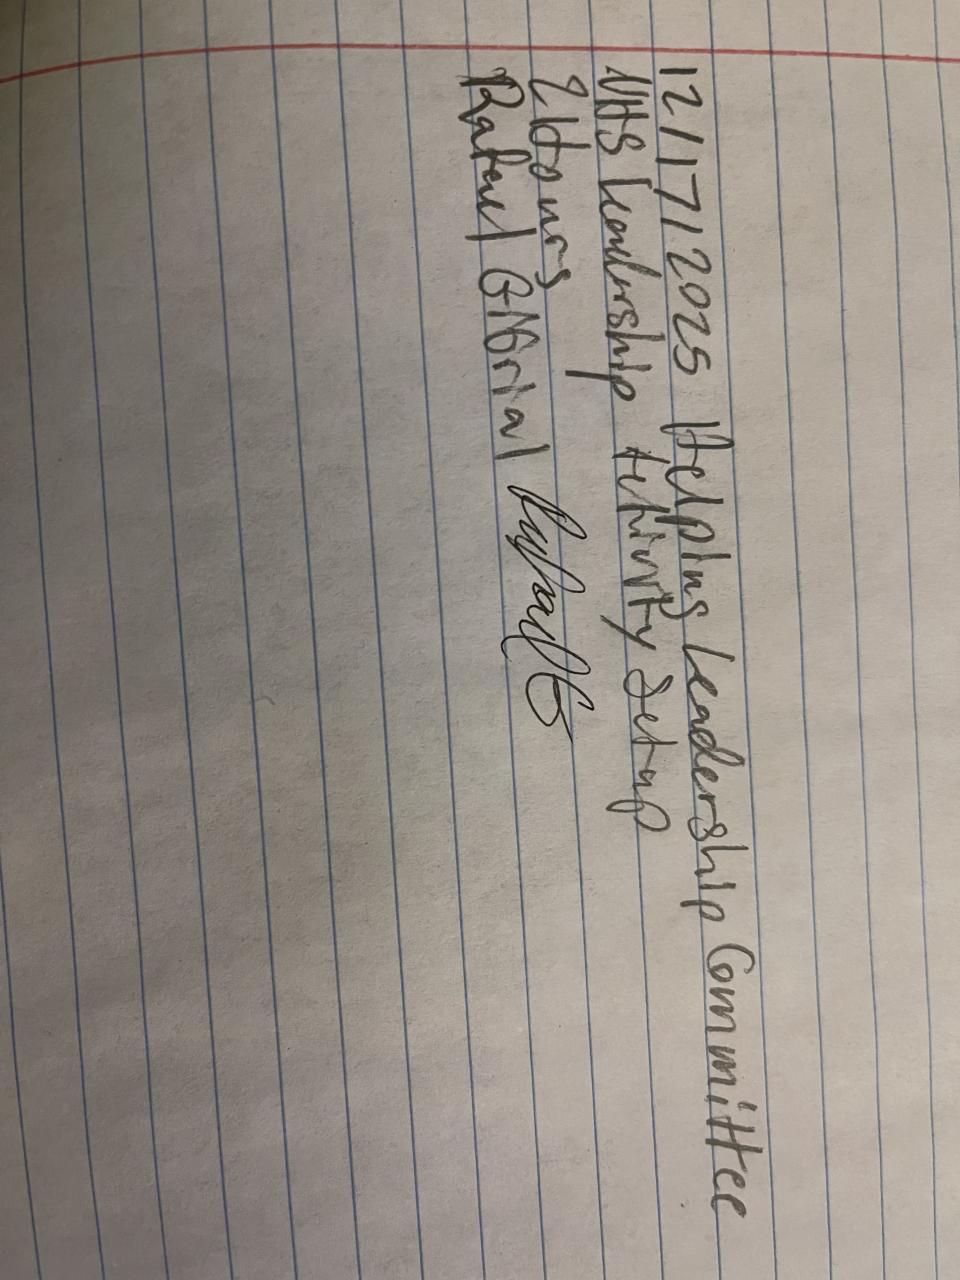 12/17/2025 Helping Leadership Committee
NHS Leadership Activity Setup
2 Hours
Rafael